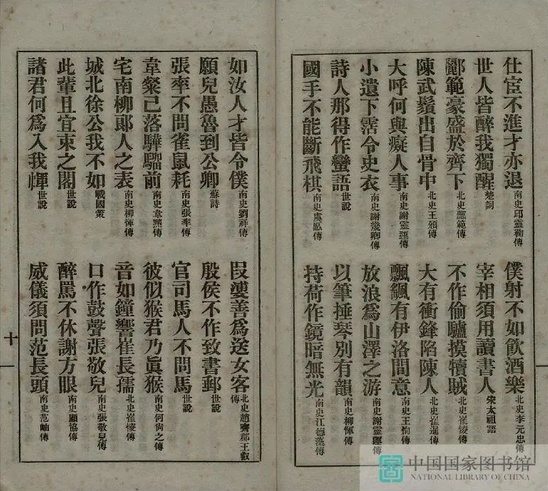 仕宦不進才亦退 南史邱靈鞠傳
僕射不如飲酒樂 北史李元忠傳
世人皆醉我獨醒 楚詞
宰相須用讀書人 宋太祖語
酈範豪盛於齊下 北史酈範傳
不作偷驢摸犢賊 北史崔㥄傳
陳武鬚出自骨中 北史王頒傳
大有衝鋒陷陳人 北史崔暹傳
大呼何與癡人事 南史謝靈運傳
飄颻有伊洛間意 南史傳
小遺下霑令史衣 南史謝幾卿傳
放浪爲山澤之游 南史謝靈運傳
詩人那得作蠻語 世說
以筆捶琴別有韻 南史柳惲傳
國手不能斷飛棋 南史虞愿傳
持荷作鏡暗無光 南史江德藻傳
如汝人才皆令僕 南史劉祥傳
段婆善爲送女客 北史趙齊郡王叡傳
願兒愚魯到公卿 蘇詩
殷侯不作致書郵 世說
張率不問雀鼠耗 南史張率傳
官司馬人不問馬 世說
韋粲已落驊騮前 南史韋粲傳
彼似猴君乃眞猴 南史何尙之傳
宅南柳郞人之表 南史柳惲傳
音如鐘響崔長孺 北史崔㥄傳
城北徐公我不如 戰國策
口作鼓聲張敬兒 南史張敬兒傳
此輩且宜束之閣 世說
醉罵不休謝方眼 南史顧協傳
諸君何爲入我㡓 世說
威儀須問范長頭 南史范岫傳
十
中国国家图书馆
NATIONAL LIBRARY OF CHINA